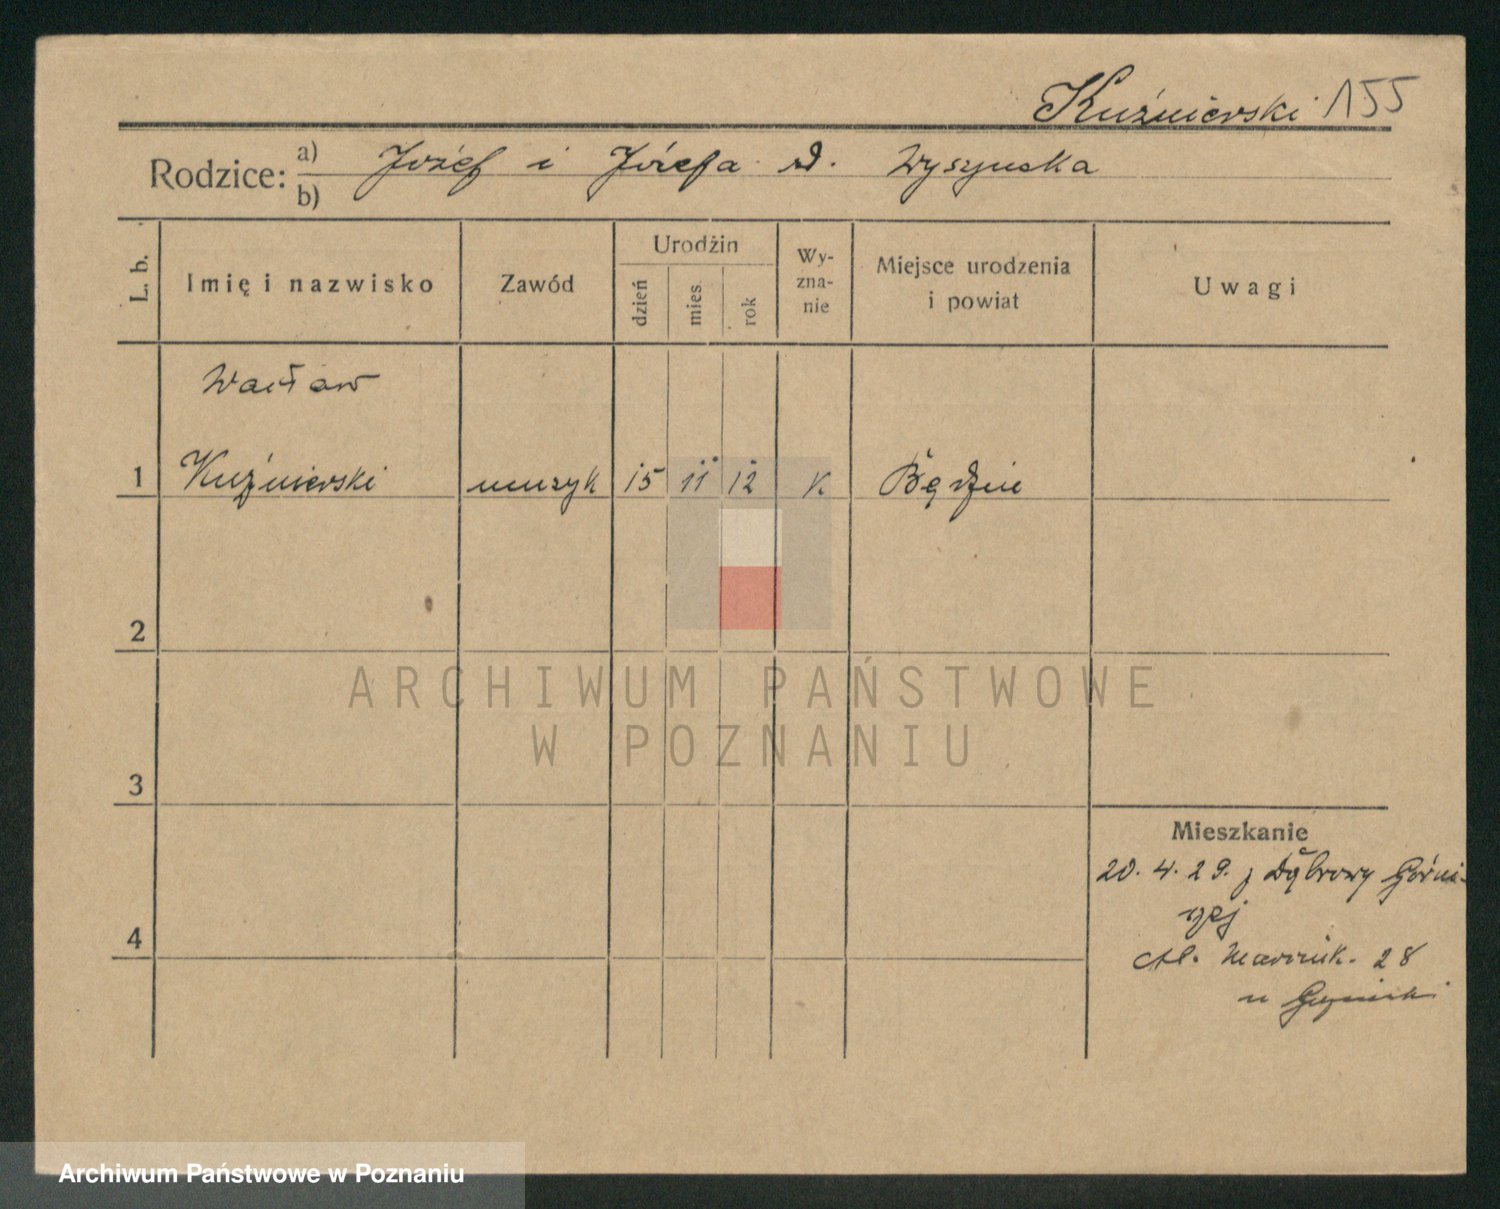 Kuźnierski 155
Rodzice: a) Józef i Józefa d. Wyszynska
b)
L. b. Imię i nazwisko Zawód Urodzin dzień mies. rok Wyznanie Miejsce urodzenia i powiat Uwagi
Wacław
1 Kuźnierski muzyk 15 11 12 K Będzin
2
3
Mieszkanie
20. 4. 29. z Dąbrowy Górni-
czej
4
Al. Marcink. 28
u
ARCHIWUM PAŃSTWOWE
W POZNANIU
Archiwum Państwowe w Poznaniu